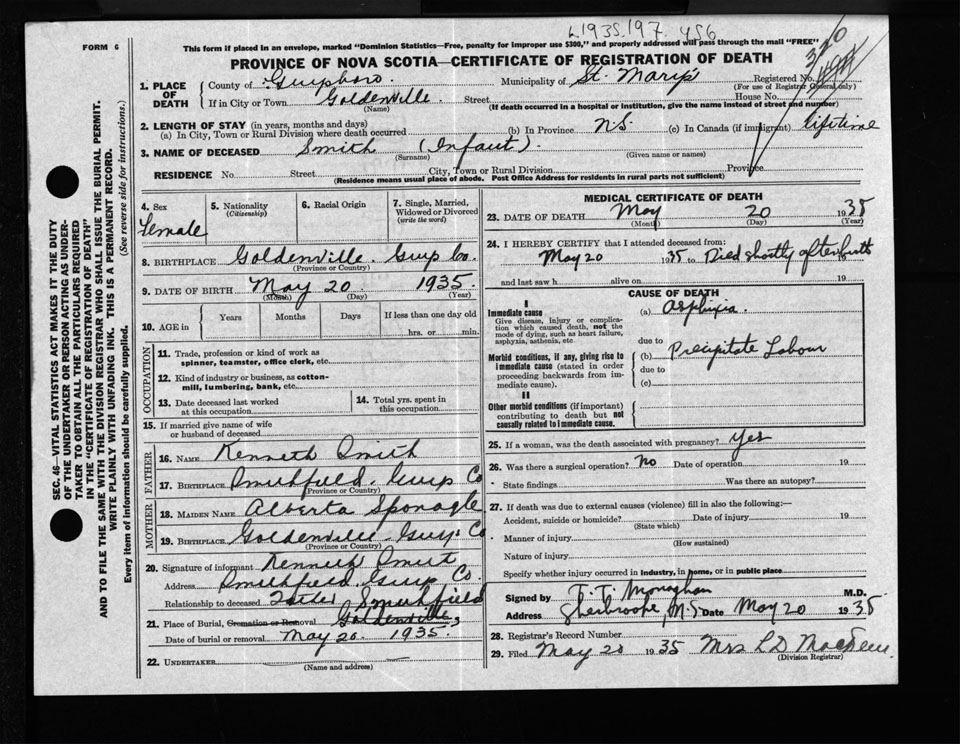 L1935.197 456
FORM 6
This form if placed in an envelope, marked "Dominion Statistics—Free, penalty for improper use $300," and properly addressed will pass through the mail "FREE"
PROVINCE OF NOVA SCOTIA—CERTIFICATE OF REGISTRATION OF DEATH
1. PLACE OF DEATH
County of Guysboro. Municipality of St. Mary's Registered No.
(For use of Registrar General only)
If in City or Town Goldenville Street House No.
(Name) (If death occurred in a hospital or institution, give the name instead of street and number)
2. LENGTH OF STAY (in years, months and days)
(a) In City, Town or Rural Division where death occurred (b) In Province N.S. (c) In Canada (if immigrant) lifetime
3. NAME OF DECEASED Smith (Infant).
(Surname) (Given name or names)
RESIDENCE No. Street City, Town or Rural Division Province
(Residence means usual place of abode. Post Office Address for residents in rural parts not sufficient)
4. Sex
Female
5. Nationality
(Citizenship)
6. Racial Origin
7. Single, Married, Widowed or Divorced
(write the word)
8. BIRTHPLACE Goldenville. Guys Co.
(Province or Country)
9. DATE OF BIRTH May 20. 1935.
(Month) (Day) (Year)
10. AGE in
Years Months Days If less than one day old
hrs. or min.
OCCUPATION
11. Trade, profession or kind of work as
spinner, teamster, office clerk, etc.
12. Kind of industry or business, as cotton-
mill, lumbering, bank, etc.
13. Date deceased last worked
at this occupation
14. Total yrs. spent in
this occupation
15. If married give name of wife
or husband of deceased
FATHER
16. NAME Kenneth Smith
17. BIRTHPLACE Smithfield, Guys Co
(Province or Country)
MOTHER
18. MAIDEN NAME Alberta Sponagle
19. BIRTHPLACE Goldenville Guys. Co
(Province or Country)
20. Signature of informant Kenneth Smith
Address Smithfield Guys Co.
Relationship to deceased Father Smithfield
21. Place of Burial, Cremation or Removal Goldenville,
Date of burial or removal May 20. 1935.
22. UNDERTAKER
(Name and address)
MEDICAL CERTIFICATE OF DEATH
23. DATE OF DEATH May 20 1935
(Month) (Day) (Year)
24. I HEREBY CERTIFY that I attended deceased from:
May 20 1935 to Died shortly after birth
and last saw h alive on 19
CAUSE OF DEATH
I
Immediate cause
Give disease, injury or complica-
tion which caused death, not the
mode of dying, such as heart failure,
asphyxia, asthenia, etc.
(a) Asphixia.
due to
Morbid conditions, if any, giving rise to
immediate cause (stated in order
proceeding backwards from im-
mediate cause).
(b) Precipitate Labour
due to
(c)
II
Other morbid conditions (if important)
contributing to death but not
causally related to immediate cause.
25. If a woman, was the death associated with pregnancy? yes
26. Was there a surgical operation? no Date of operation 19
State findings Was there an autopsy?
27. If death was due to external causes (violence) fill in also the following:—
Accident, suicide or homicide? Date of injury 19
(State which)
Manner of injury
(How sustained)
Nature of injury
Specify whether injury occurred in industry, in home, or in public place
Signed by T. T. Monaghan M.D.
Address Sherbrooke, N.S Date May 20 1935
28. Registrar's Record Number
29. Filed May 20 1935 Mrs L D
(Division Registrar)
SEC. 46—VITAL STATISTICS ACT MAKES IT THE DUTY
OF THE UNDERTAKER OR PERSON ACTING AS UNDER-
TAKER TO OBTAIN ALL THE PARTICULARS REQUIRED
IN THE "CERTIFICATE OF REGISTRATION OF DEATH"
AND TO FILE THE SAME WITH THE DIVISION REGISTRAR WHO SHALL ISSUE THE BURIAL PERMIT.
WRITE PLAINLY WITH UNFADING INK. THIS IS A PERMANENT RECORD.
Every item of information should be carefully supplied. (See reverse side for instructions.)